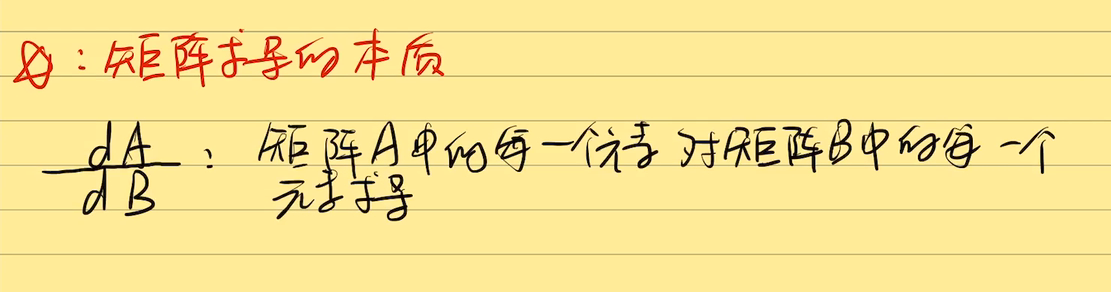 Q：矩阵求导的本质
dA/dB：矩阵A中的每一个元素对矩阵B中的每一个
元素求导